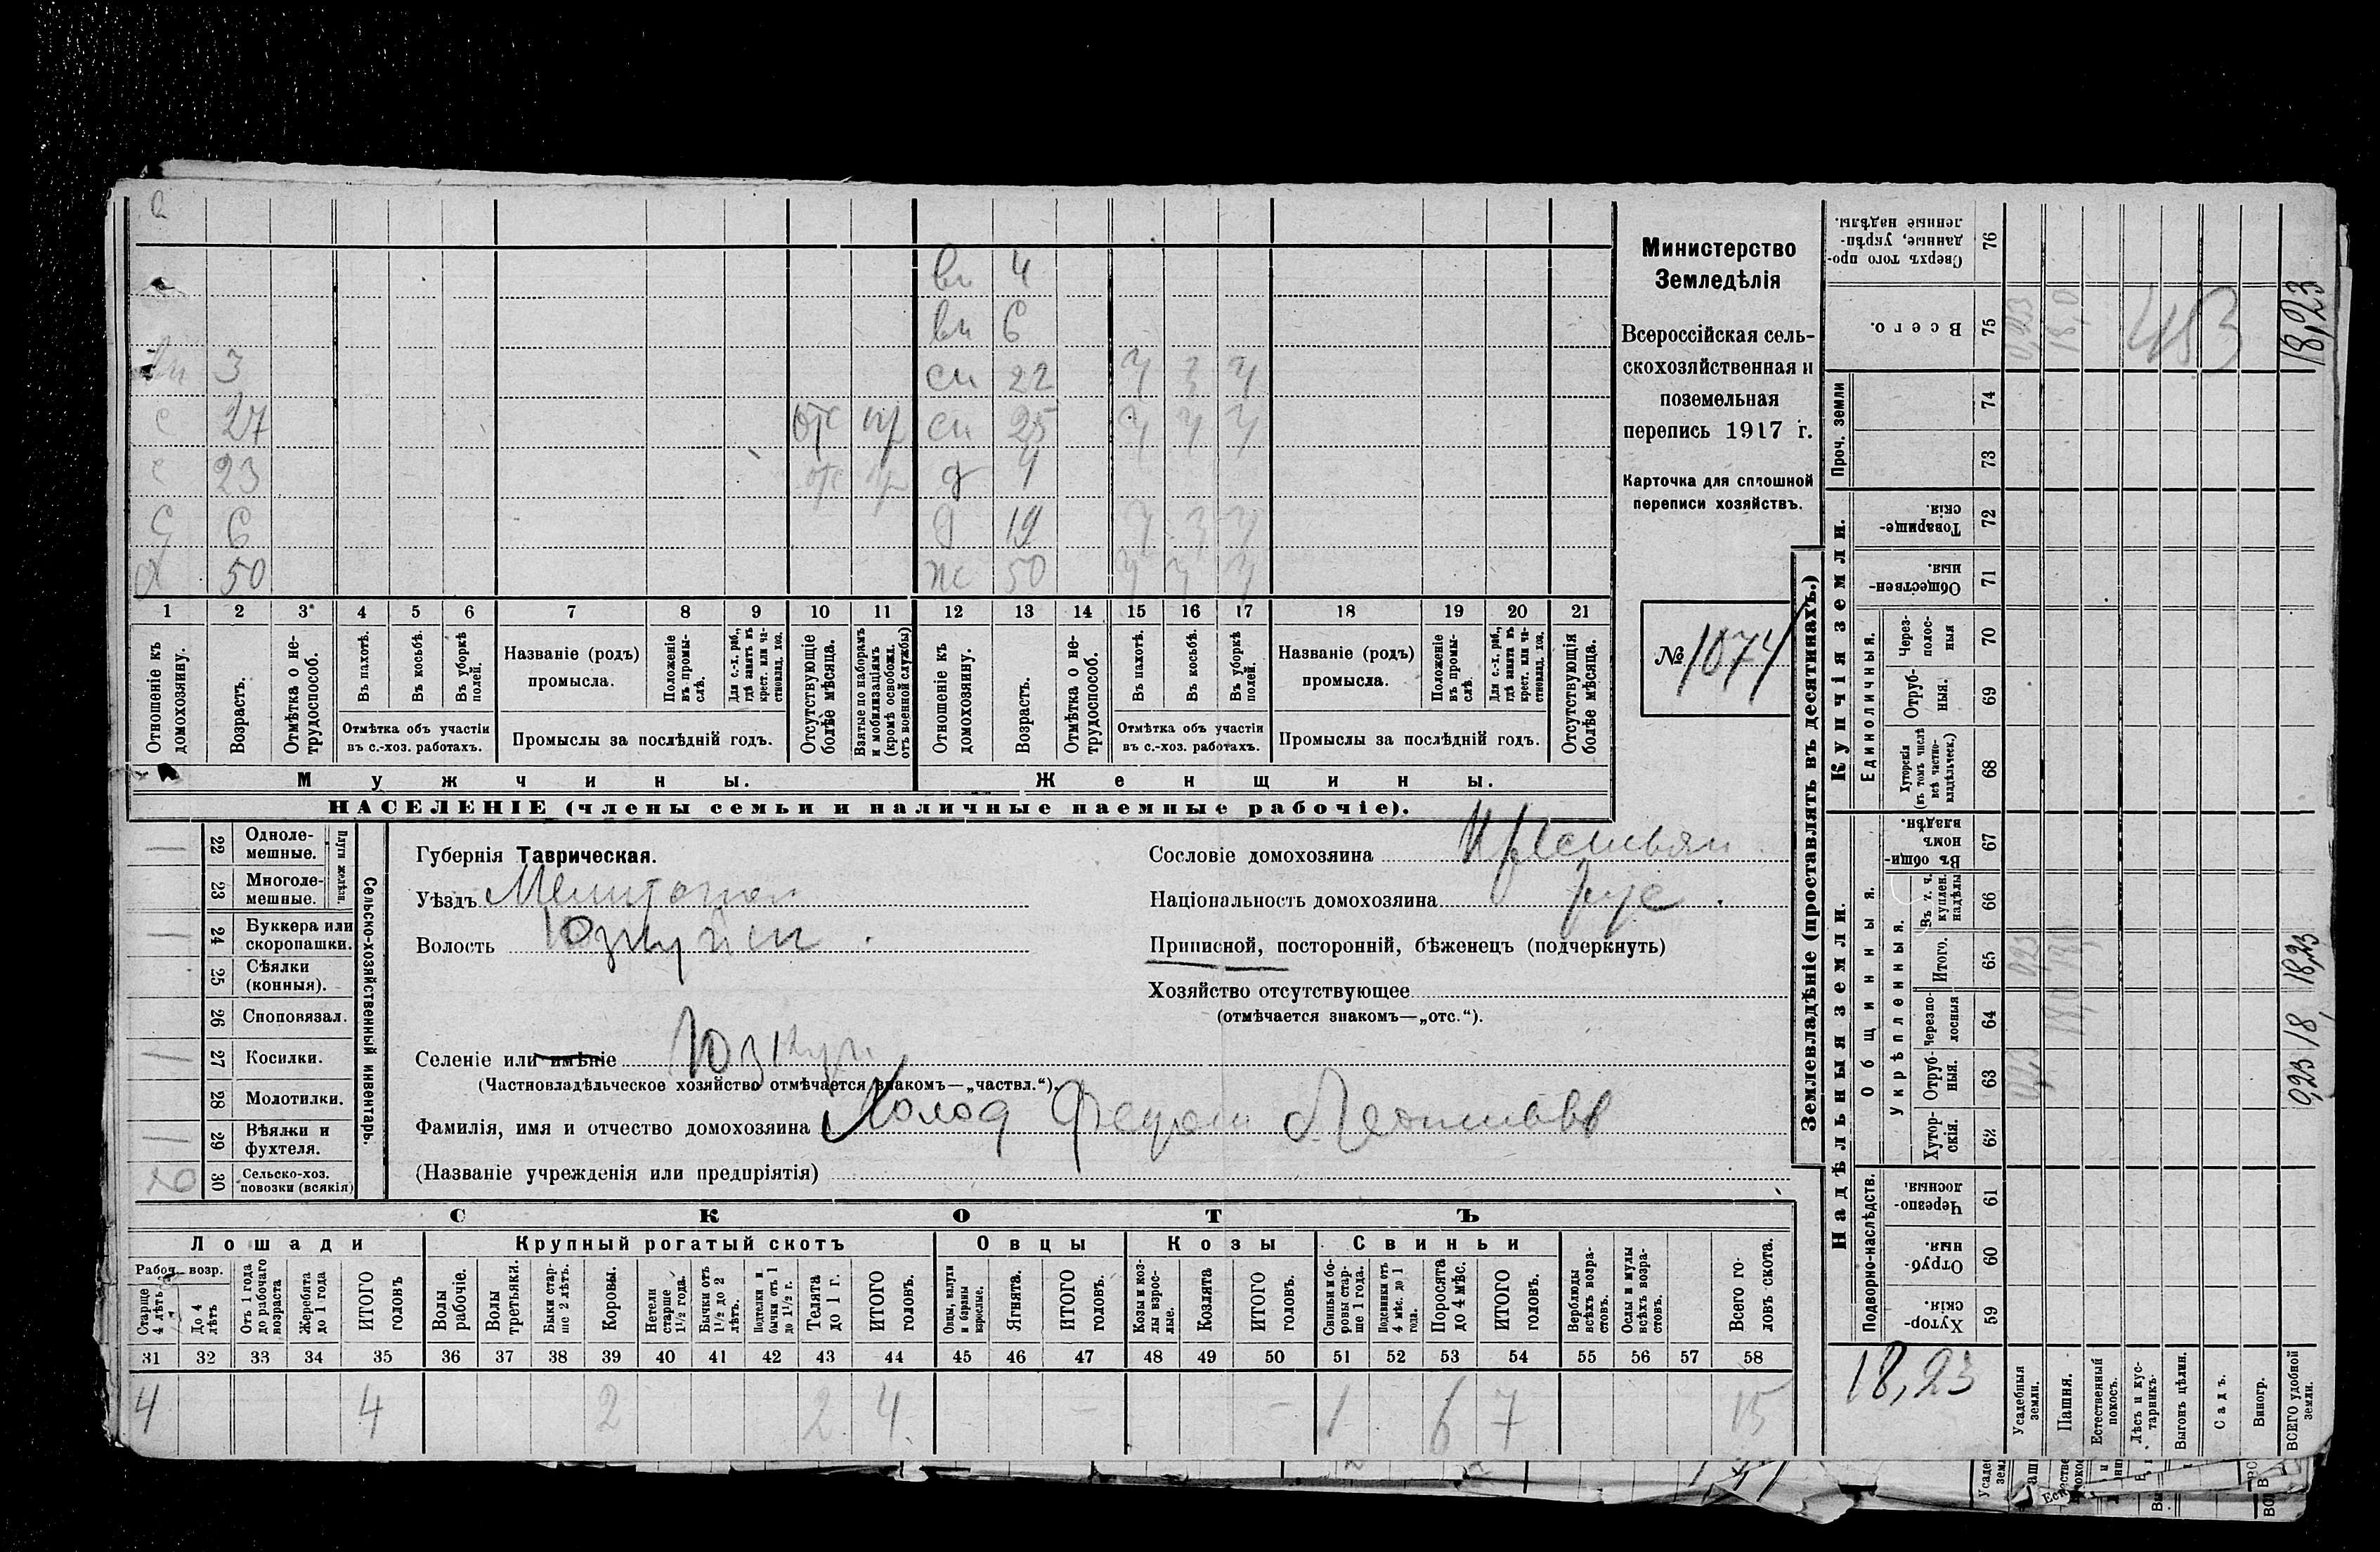 вн 4
вн 6
вн 3 сн 22 ч ч ч
с 27 отс пр сн 25 ч ч ч
с 23 отс пр д 4
с 6 д 19 ч ч ч
х 50 ж 50 ч ч ч
1 2 3* 4 5 6 7 8 9 10 11 12 13 14 15 16 17 18 19 20 21
Отношеніе къ домохозяину.
Возрастъ.
Отмѣтка о не-
трудоспособ.
Въ пахотѣ.
Въ косьбѣ.
Въ уборкѣ
полей.
Отмѣтка объ участіи
въ с.-хоз. работахъ.
Названіе (родъ)
промысла.
Положеніе
въ промы-
слѣ.
Для с.-х. раб.,
гдѣ занятъ въ
крест. или ча-
стновлад. хоз.
Промыслы за послѣдній годъ.
Отсутствующіе
болѣе мѣсяца.
Взятые по наборамъ
и мобилизаціямъ
(кромѣ освобожд.
отъ военной службы)
Отношеніе къ
домохозяину.
Возрастъ.
Отмѣтка о не-
трудоспособ.
Въ пахотѣ.
Въ косьбѣ.
Въ уборкѣ
полей.
Отмѣтка объ участіи
въ с.-хоз. работахъ.
Названіе (родъ)
промысла.
Положеніе
въ промы-
слѣ.
Для с.-х. раб.,
гдѣ занята въ
крест. или ча-
стновлад. хоз.
Промыслы за послѣдній годъ.
Отсутствующія
болѣе мѣсяца.
Мужчины. Женщины.
НАСЕЛЕНІЕ (члены семьи и наличные наемные рабочіе).
Министерство
Земледѣлія
Всероссійская сель-
скохозяйственная и
поземельная
перепись 1917 г.
Карточка для сплошной
переписи хозяйствъ.
№ 1074
Сельско-хозяйственный инвентарь.
Плуги желѣзн.
22 Одноле-
мешные.
23 Многоле-
мешные.
24 Буккера или
скоропашки.
25 Сѣялки
(конныя).
26 Сноповязал.
27 Косилки.
28 Молотилки.
29 Вѣялки и
фухтеля.
30 Сельско-хоз.
повозки (всякія)
Губернія Таврическая.
Уѣздъ Мелитопол
Волость Юзкуйск
Селеніе или имѣніе Юзкуи
(Частновладѣльческое хозяйство отмѣчается знакомъ—„частвл.“).
Фамилія, имя и отчество домохозяина Холод
(Названіе учрежденія или предпріятія)
Сословіе домохозяина Крестьян
Національность домохозяина рус.
Приписной, посторонній, бѣженецъ (подчеркнуть)
Хозяйство отсутствующее
(отмѣчается знакомъ—„отс.“).
СКОТЪ
Лошади Крупный рогатый скотъ Овцы Козы Свиньи
Рабоч. возр.
Старше
4 лѣтъ.
До 4
лѣтъ
Отъ 1 года
до рабочаго
возраста
Жеребята
до 1 года
ИТОГО
головъ
Волы
рабочіе.
Волы
третьяки.
Быки стар-
ше 2 лѣтъ.
Коровы.
Нетели
старше
1½ года.
Бычки отъ
1½ до 2
лѣтъ.
Подтелки и
бычки отъ 1
до 1½ г.
Телята
до 1 г.
ИТОГО
головъ.
Овцы, валухи
и бараны
взрослые.
Ягнята.
ИТОГО
головъ.
Козы и коз-
лы взрос-
лые.
Козлята
ИТОГО
головъ.
Свиньи и бо-
ровы стар-
ше 1 года.
Подсвинки отъ
4 мѣс. до 1
года.
Поросята
до 4 мѣс.
ИТОГО
головъ.
Верблюды
всѣхъ возра-
стовъ.
Ослы и мулы
всѣхъ возра-
стовъ.
Всего го-
ловъ скота.
31 32 33 34 35 36 37 38 39 40 41 42 43 44 45 46 47 48 49 50 51 52 53 54 55 56 57 58
4 4 2 2 4 — — 1 6 7 15
Землевладѣніе (проставлять въ десятинахъ.)
Надѣльныя земли. Купчія земли. Проч. земли
Подворно-наслѣдств.
Общинныя.
Укрѣпленныя.
Единоличныя.
Хутор-
скія. 59
Отруб-
ныя. 60
Черезпо-
лосныя. 61
Хутор-
скія. 62
Отруб-
ныя. 63
Черезпо-
лосныя 64
Итого. 65
Въ т. ч.
куплен.
надѣлы 66
Въ общи-
номъ
владѣн. 67
Хуторскія
(въ томъ числѣ
всѣ частно-
владѣльческ.) 68
Отруб-
ныя. 69
Через-
полос-
ныя 70
Обществен-
ныя. 71
Товарище-
скія. 72
73
74
Всего. 75
Сверхъ того про-
данные, укрѣп-
ленные надѣлы. 76
18,23
Усадебныя
земли. 0,23 0,23 0,23
Пашня. 18,0 18,0 18,0
Естественный
покосъ.
Лѣсъ и кус-
тарникъ.
Выгонъ цѣлин.
Садъ.
Виногр.
ВСЕГО удобной
земли. 0,23 18, 18,23 18,23
483